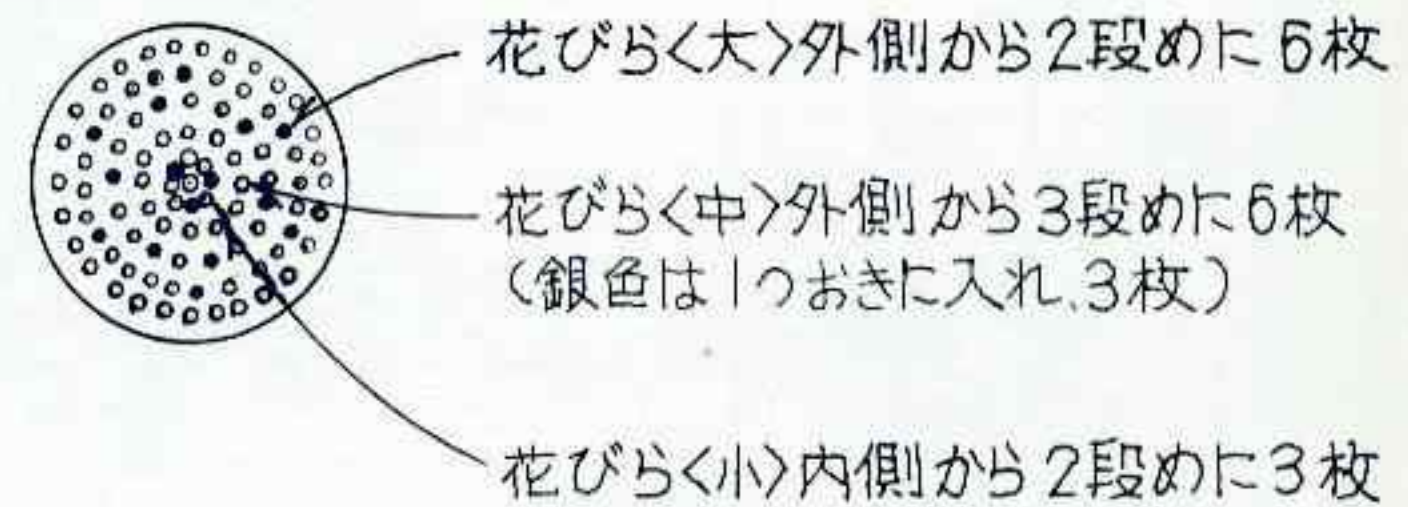 花びら〈大〉外側から2段めに6枚
花びら〈中〉外側から3段めに6枚
(銀色は1つおきに入れ、3枚)
花びら〈小〉内側から2段めに3枚